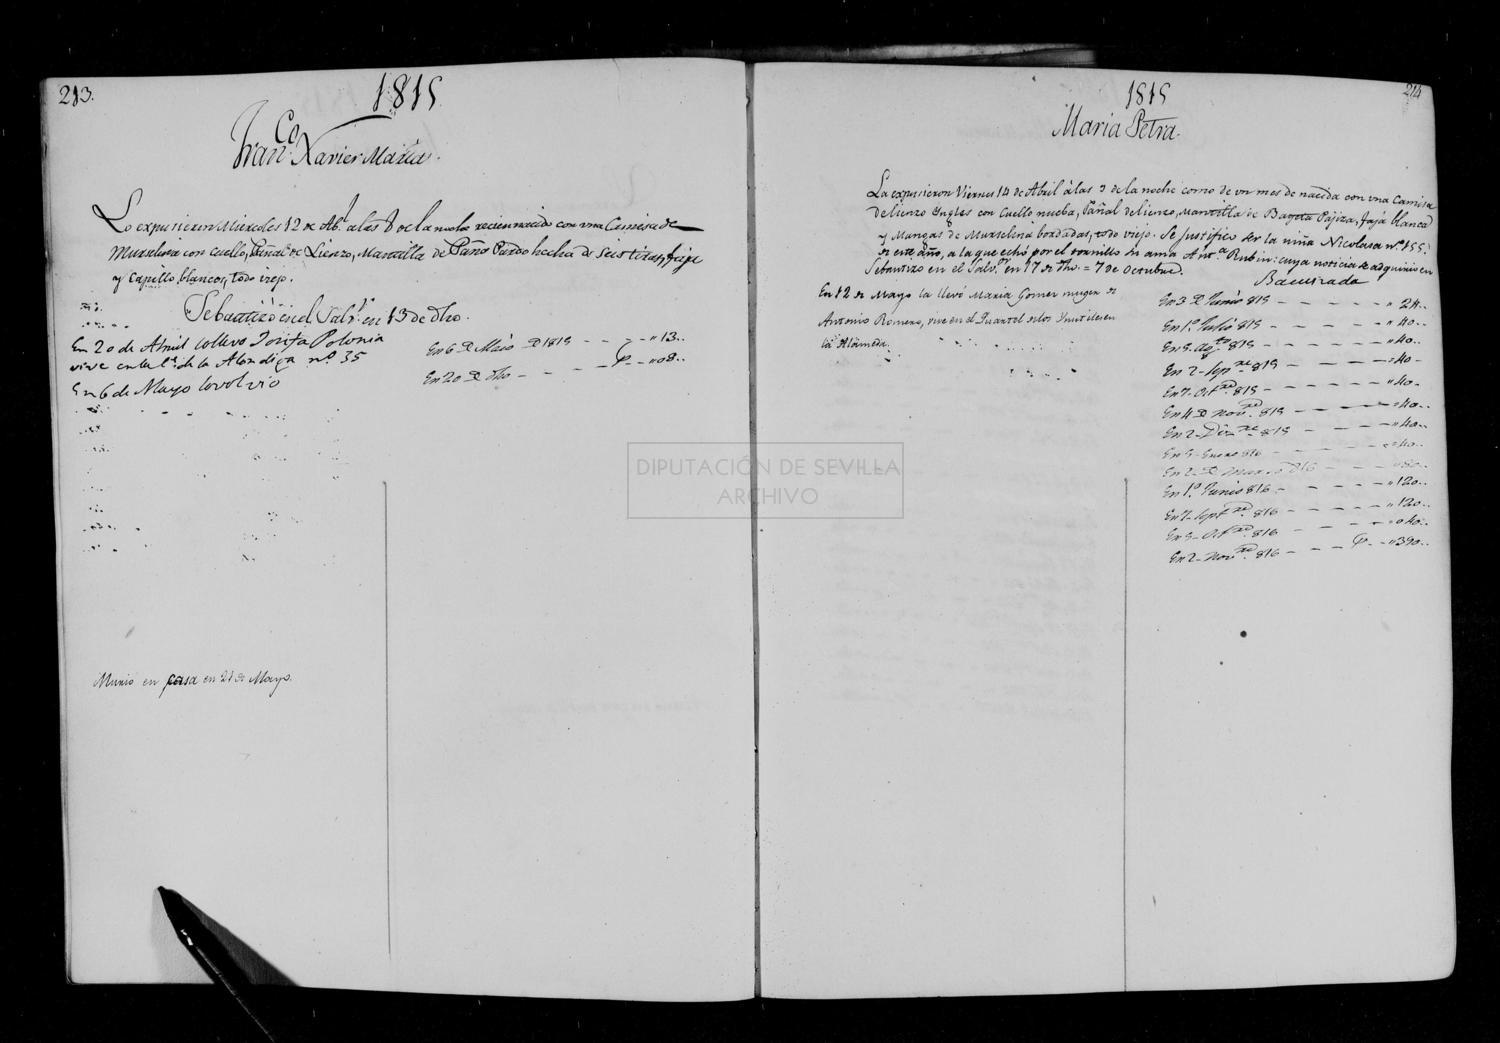 213.
1815
Franco. Xavier Maria.
Lo expusieron Miercoles 12 de Abl. a las 8 de la noche recien nacido con una Camisa de
Murselina con cuello, Pañal de Lienzo, Mantilla de Paño Pardo hecha de seis tiras, faja
y Capillo blancos, todo viejo.
Se bautizó en el Salr. en 13 de dho.
En 20 de Abril lo llevo Josefa Polonia
vive en la de la Alondiga no. 35
En 6 de Mayo lo volvio
En 6 de Maio de 1815 - - " 13..
En 20 de dho - - - - " 08..
Murió en casa en 21 de Mayo.
DIPUTACIÓN DE SEVILLA
ARCHIVO
214
1815
Maria Petra.
La expusieron Viernes 14 de Abril á las 9 de la noche como de un mes de nacida con una Camisa
de lienzo Ingles con Cuello nueba, Pañal de lienzo, Mantilla de Bayeta Pajiza, Faja blanca
y Mangas de Murselina bordadas, todo viejo. Se justificó ser la niña Nicolasa no. 155
de este año, a la que echó por el tornillo su ama Anta. Rubin: cuya noticia se adquirió en
7 de Octubre.
Se bautizo en el Salr. en 17 de dho. =
En 12 de Mayo la llevó Maria Gomez muger de
Antonio Romero, vive en el Quartel de los Inutiles en
la Alameda.
En 3 de Junio 815 - - - - " 24..
En 1o. Julio 815 - - - - " 40..
En 5 Agto. 815 - - - - " 40..
En 2 Sepre. 815 - - - - " 40..
En 7 Octre. 815 - - - - " 40..
En 4 de Novre. 815 - - - - " 40..
En 2 Dizre. 815 - - - - " 40..
En 5 Enero 816 - - - - " 40..
En 2 de Marzo 816 - - - - " 80..
En 1o. Junio 816 - - - - " 120..
En 7 Septre. 816 - - - - " 120..
En 5 Octre. 816 - - - - " 40..
En 2 Novre. 816 - - - - " 390..